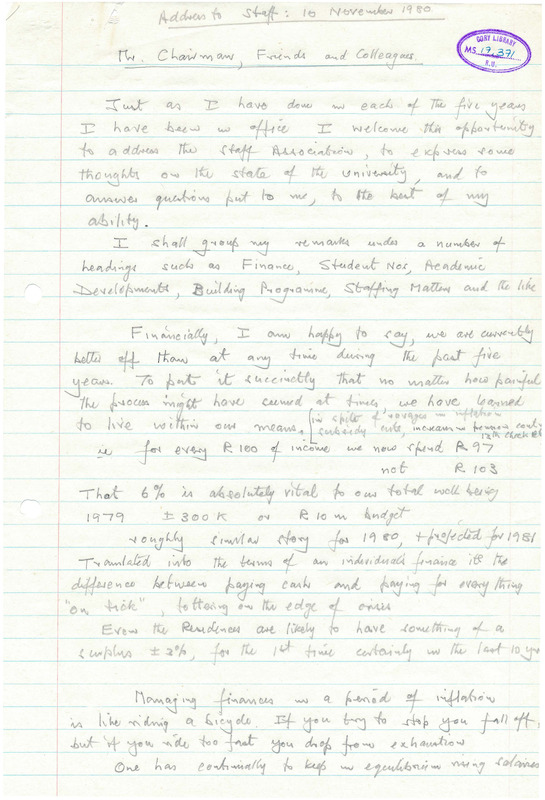 Address to Staff: 10 November 1980
CORY LIBRARY
MS. 17,371
R.U.
Mr. Chairman, Friends and Colleagues.
Just as I have done in each of the five years
I have been in office I welcome this opportunity
to address the Staff Association, to express some
thoughts on the state of the university, and to
answer questions put to me, to the best of my
ability.
I shall group my remarks under a number of
headings such as Finance, Student Nos, Academic
Developments, Building Programme, Staffing Matters and the like
Financially, I am happy to say, we are currently
better off than at any time during the past five
years. To put it succinctly that no matter how painful
the process might have seemed at times we have learned
to live within our means, (in spite of ravages in inflation
subsidy cuts, increase in pension cont
12th cheque
ie for every R100 of income we now spend R97
not R103
That 6% is absolutely vital to our total well being
1979 ± 300K on R10m budget
roughly similar story for 1980, + projected for 1981
Translated into the terms of an individual's finance it's the
difference between paying cash and paying for everything
"on tick", tottering on the edge of crises
Even the Residences are likely to have something of a
surplus ± 3%, for the 1st time certainly in the last 10 yrs
Managing finances in a period of inflation
is like riding a bicycle. If you try to stop you fall off,
but if you ride too fast you drop from exhaustion
One has continually to keep in equilibrium rising salaries